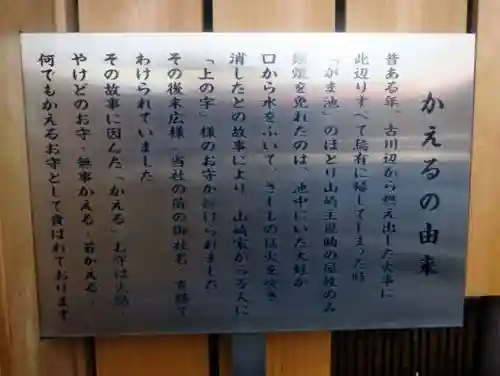 かえるの由来
昔ある年、古川辺から燃え出した火事に
此辺りすべて烏有に帰してしまった時
「がま池」のほとり山崎主税助の屋敷のみ
類焼を免れたのは、池中にいた大蛙が
口から水をふいて、さしもの猛火を吹き
消したとの故事により、山崎家から人に
「上の字」様のお守が授けられました
その後末広様（当社の前の御社名）を勝て
わけられていました
その故事に因んだ「かえる」お守は火防、
やけどのお守・無事かえる・若かえる・
何でもかえるお守として食ばれております